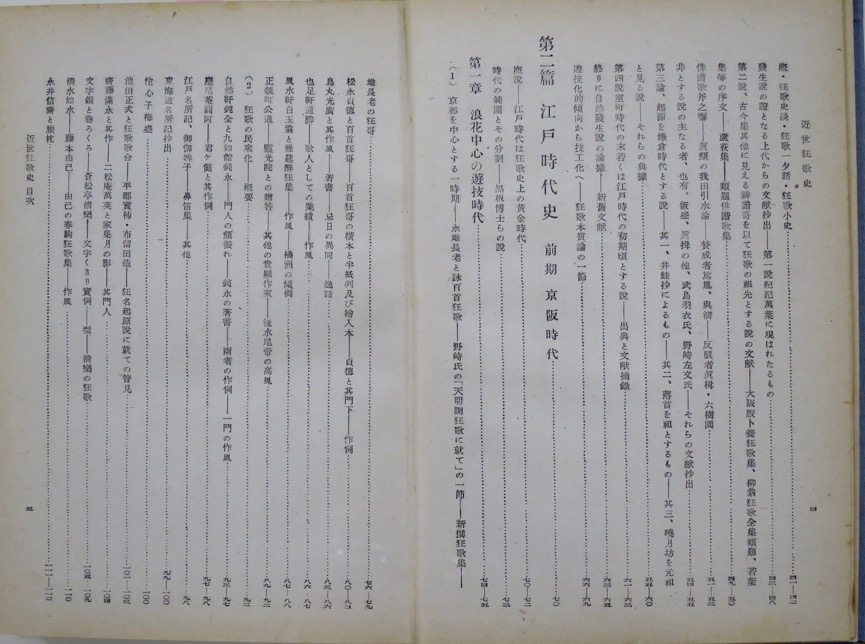 近世狂歌史
槪・狂歌史談・狂歌一夕話・狂歌小史……四一―四二
發生說の證となる上代からの文献抄出――第一說紀記萬葉に現はれたるもの……四三―四八
第二說、古今集其他に見える誹諧哥を以て狂歌の祖先とする說の文献――大阪版卜養狂歌集、柳翁狂歌全集類題、若葉
集等の序文――蘆荻集――類題俳諧歌集……四九―五〇
俳諧歌斧之響――眞顏の我田引水論――賛成者篤胤、與淸――反駁者眞楫・六樹園……五一―五三
非とする說の主なる者、也有、飯盛、眞楫の他、武島羽衣氏、野崎左文氏――それらの文献抄出……五四―五五
第三論、起源を鎌倉時代とする說――其一、井蛙抄によるもの――其二、落首を祖とするもの――其三、曉月坊を元祖
と見る說――それらの典據……五五―六〇
第四說室町時代の末若くは江戸時代の初期頃とする說――出典と文献摘錄……六一―六二
終りに自然發生說の論據――新舊文献……六六―六九
遊技化的傾向から技工化へ――狂歌本質論の一節
第二篇 江戸時代史 前期 京阪時代……七〇
槪說――江戸時代は狂歌史上の黃金時代……七〇―七二
時代の範圍とその分割――黑板博士らの說……七三
第一章 浪花中心の遊技時代……七四―七五
(1) 京都を中心とする一時期――永雄長老と詠百首狂歌――野崎氏の「天明調狂歌に就て」の一節――新撰狂歌集――
四
雄長老の狂哥……七六―七九
松永貞德と百首狂哥――百首狂哥の橫本と半紙判及び繪入本――貞德と其門下――作例……八〇―八三
烏丸光廣と其作風 著書――忌日の異同――逸話……八三―八六
也足軒通勝――歌人としての業績――作風……八六
風水軒白玉翁と雅筵醉狂集 作風――橘洲の傾倒……八七―八八
正親町公通――靈元院との贈答――其他の貴顯作家――後水尾帝の高風……八九―九二
(2) 狂歌の民衆化――槪要……九二
自然軒鈍全と九如館鈍永 門人の顏振れ――鈍永の著書――兩者の作例――一門の作風……九三―九七
慶尾菴繭阿――君ケ側と其作例……九七―九八
江戸名所記――御伽婢子――鼻笛集――其他……九八
東海道名所記抄出……九九―一〇〇
怡心子梅盛……一〇〇
池田正式と狂歌歌合――平郡實柿・布留田造――狂名起原說に就ての管見……一〇二―一〇三
齋藤滿永と其作――二松庵萬英と家集月の影 其門人……一〇四
文字鎖と卷ろくろ――蒼松亭淸樂――文字くさり實例 型――淸樂の狂歌……一〇五―一〇九
淸水如水――藤本由己――由己の春駒狂歌集 作風……一一〇
永井信齋と旅枕……一一一―一一三
近世狂歌史 目次
五